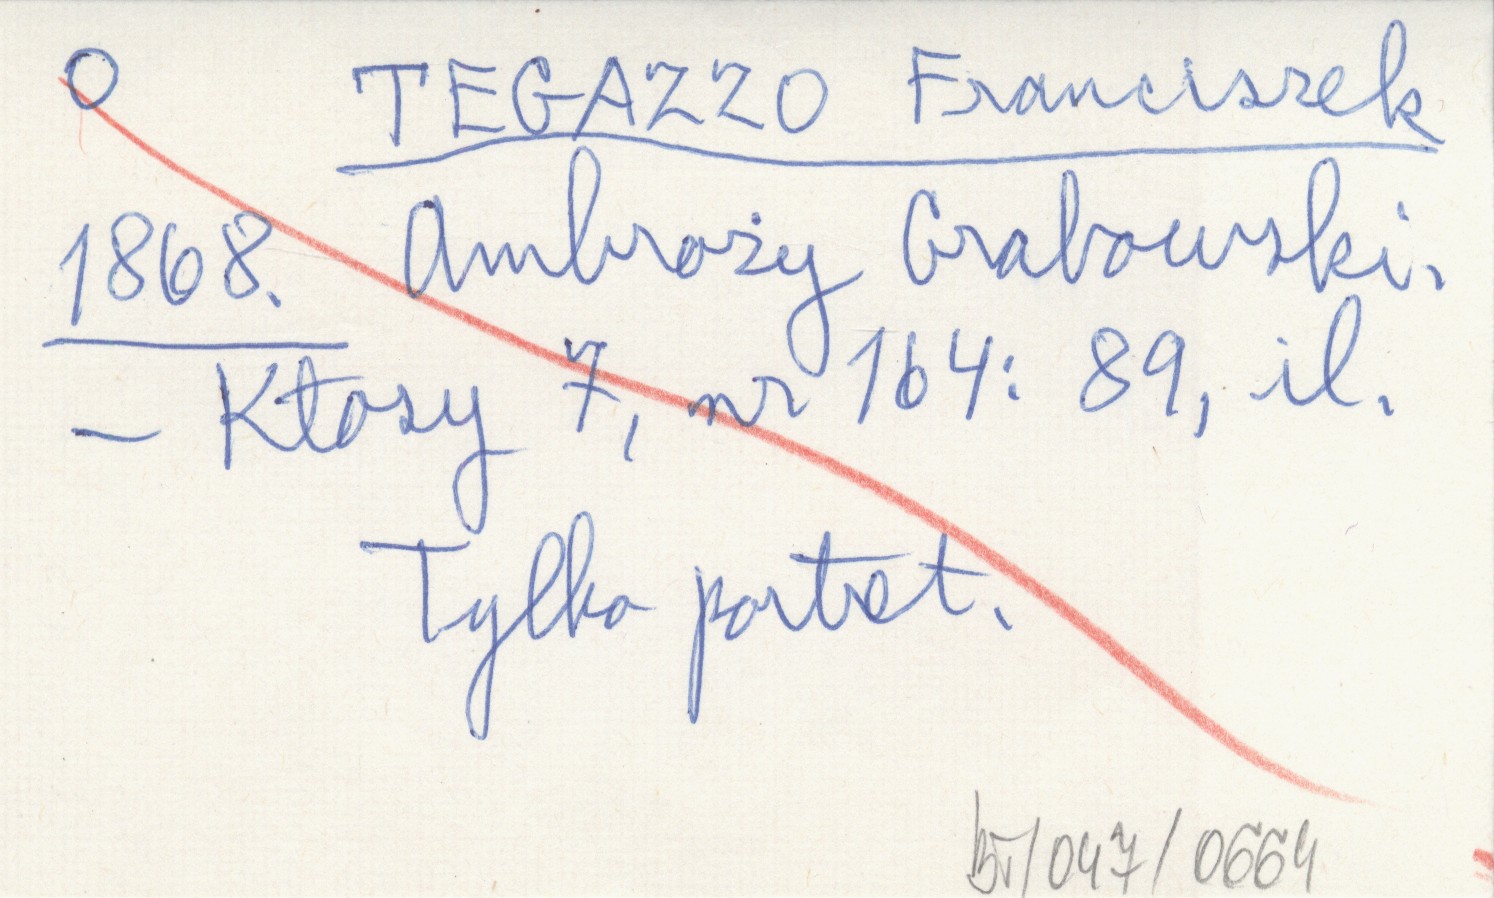 O TEGAZZO Franciszek
1868. Ambroży Grabowski.
- Kłosy 7, nr 164: 89, il.
Tylko portret.
/047/0664